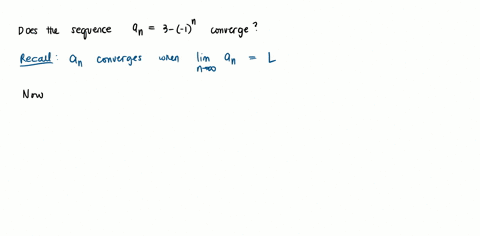 Does the sequence aₙ = 3-(-1)ⁿ converge?
Recall: aₙ converges when lim n→∞ aₙ = L
Now